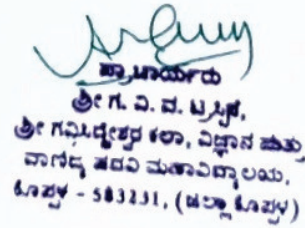 ಪ್ರಾಚಾರ್ಯರು
ಶ್ರೀ ಗ. ವಿ. ವ. ಟ್ರಸ್ಟಿನ,
ಶ್ರೀ ಗವಿಸಿದ್ಧೇಶ್ವರ ಕಲಾ, ವಿಜ್ಞಾನ ಮತ್ತು
ವಾಣಿಜ್ಯ ಪದವಿ ಮಹಾವಿದ್ಯಾಲಯ,
ಕೊಪ್ಪಳ - 583231, (ಜಿಲ್ಲಾ ಕೊಪ್ಪಳ)